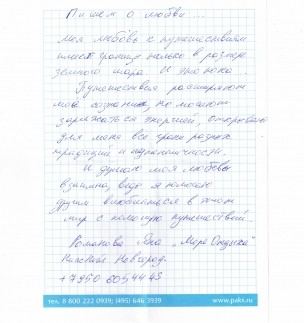 Пишем о любви...
Моя любовь к путешествиям
имеет границы только в размере
земного шара. И это пока.
Путешествия расширяют
моё сознание, помогают
заряжаться энергией, открывают
для меня все грани разных
традиций и идентичности.
И думаю моя любовь
взаимна, ведь я помогаю
другим влюбиться в этот
мир с помощью путешествий.
Романова Яна „Море Отдыха"
Нижний Новгород.
+7950 605 44 43
тел. 8 800 222 0939; (495) 646 3939
www.paks.ru